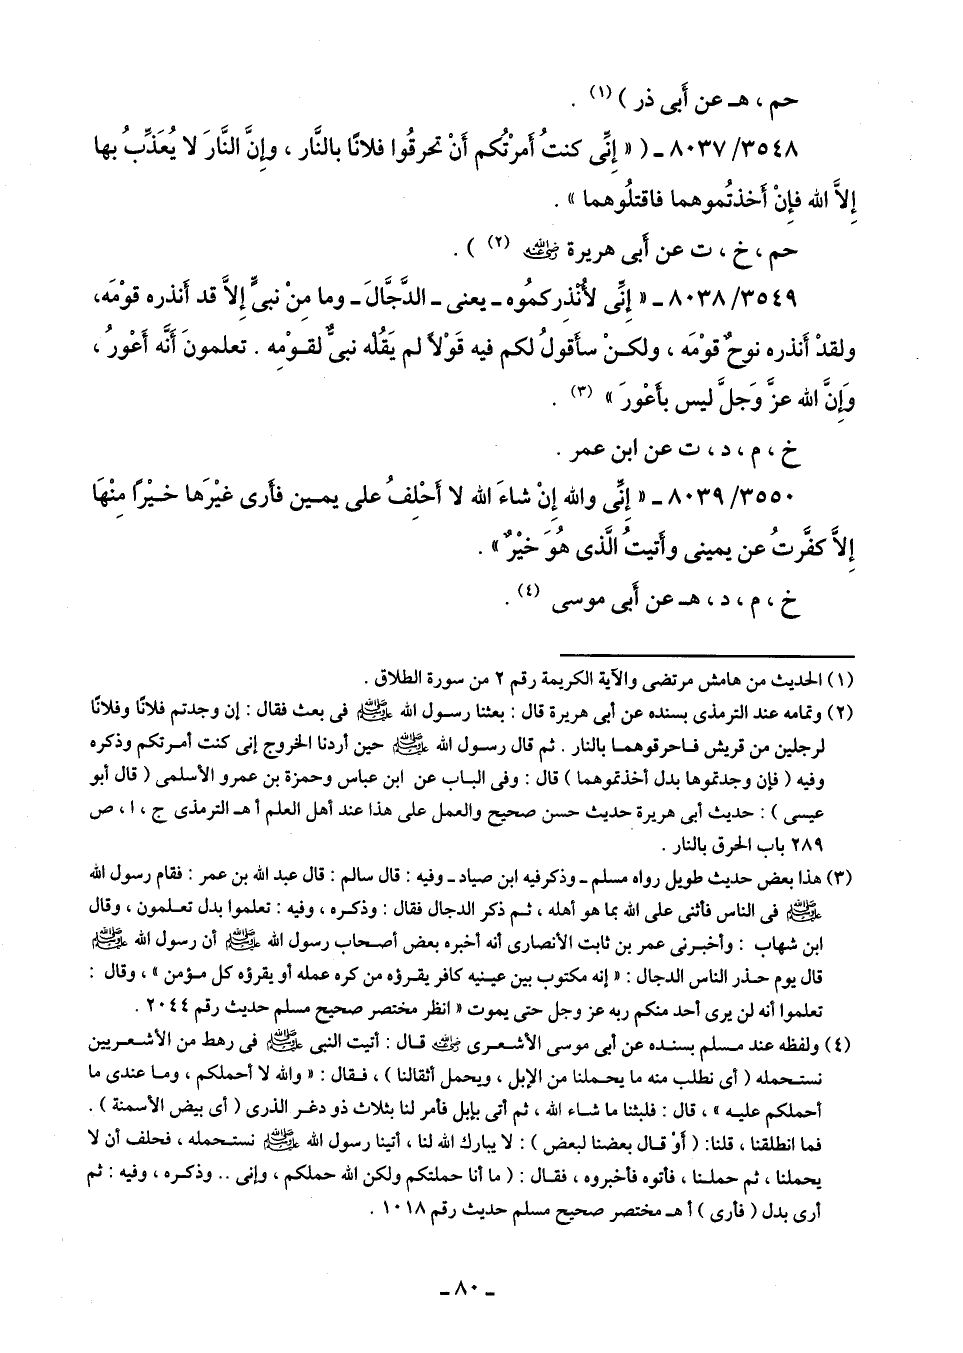 حم ، هـ عن أبى ذر ) (١) .
٨٠٣٧/٣٥٤٨ ـ ( « إنِّى كنتُ أمرْتُكم أنْ تحرقُوا فلانًا بالنَّار ، وإنَّ النَّارَ لا يُعَذِّبُ بها
إلاَّ الله فإنْ أخذتُموهما فاقتلُوهما » .
حم ، خ ، ت عن أبى هريرة رضي الله عنه (٢) ) .
٨٠٣٨/٣٥٤٩ ـ « إنِّى لأُنْذركمُوه ـ يعنى ـ الدَّجَّالَ ـ وما مِنْ نبىٍّ إلاَّ قد أنذره قومَه،
ولقدْ أنذره نوحٌ قومَه ، ولكنْ سأقولُ لكم فيه قَوْلاً لم يَقُلْه نبىٌّ لقومِه . تعلمونَ أنَّه أعْورُ ،
وَإنَّ الله عزَّ وَجلَّ ليس بأعْورَ » (٣) .
خ ، م ، د ، ت عن ابن عمر .
٨٠٣٩/٣٥٥٠ ـ « إنِّى والله إنْ شاءَ الله لا أحْلفُ على يمين فأرى غيْرَها خيْرًا منْهَا
إلاَّ كفَّرتُ عن يمينى وأتيتُ الَّذى هُوَ خيْرٌ » .
خ ، م ، د ، هـ عن أبى موسى (٤) .
(١) الحديث من هامش مرتضى والآية الكريمة رقم ٢ من سورة الطلاق .
(٢) وتمامه عند الترمذى بسنده عن أبى هريرة قال : بعثنا رسول الله ﷺ فى بعث فقال : إن وجدتم فلانًا وفلانًا
لرجلين من قريش فاحرقوهما بالنار . ثم قال رسول الله ﷺ حين أردنا الخروج إنى كنت أمرتكم وذكره
وفيه ( فإن وجدتموها بدل أخذتموهما ) قال : وفى الباب عن ابن عباس وحمزة بن عمرو الأسلمى ( قال أبو
عيسى ) : حديث أبى هريرة حديث حسن صحيح والعمل على هذا عند أهل العلم أهـ الترمذى ج ، ١ ، ص
٢٨٩ باب الحرق بالنار .
(٣) هذا بعض حديث طويل رواه مسلم ـ وذكر فيه ابن صياد ـ وفيه : قال سالم : قال عبد الله بن عمر : فقام رسول الله
ﷺ فى الناس فأثنى على الله بما هو أهله ، ثم ذكر الدجال فقال : وذكره ، وفيه : تعلموا بدل تعلمون ، وقال
ابن شهاب : وأخبرنى عمر بن ثابت الأنصارى أنه أخبره بعض أصحاب رسول الله ﷺ أن رسول الله ﷺ
قال يوم حذر الناس الدجال : « إنه مكتوب بين عينيه كافر يقرؤه من كره عمله أو يقرؤه كل مؤمن » ، وقال :
تعلموا أنه لن يرى أحد منكم ربه عز وجل حتى يموت « انظر مختصر صحيح مسلم حديث رقم ٢٠٤٤ .
(٤) ولفظه عند مسلم بسنده عن أبى موسى الأشعرى رضي الله عنه قال : أتيت النبى ﷺ فى رهط من الأشعريين
نستحمله ( أى نطلب منه ما يحملنا من الإبل ، ويحمل أثقالنا ) ، فقال : « والله لا أحملكم ، وما عندى ما
أحملكم عليه » ، قال : فلبثنا ما شاء الله ، ثم أتى بإبل فأمر لنا بثلاث ذو دغر الذرى ( أى بيض الأسنمة ) .
فما انطلقنا ، قلنا: ( أوْ قال بعضنا لبعض ) : لا يبارك الله لنا ، أتينا رسول الله ﷺ نستحمله ، فحلف أن لا
يحملنا ، ثم حملنا ، فأتوه فأخبروه ، فقال : ( ما أنا حملتكم ولكن الله حملكم ، وإنى .. وذكره ، وفيه : ثم
أرى بدل ( فأرى ) أهـ مختصر صحيح مسلم حديث رقم ١٠١٨ .
ـ ٨٠ ـ